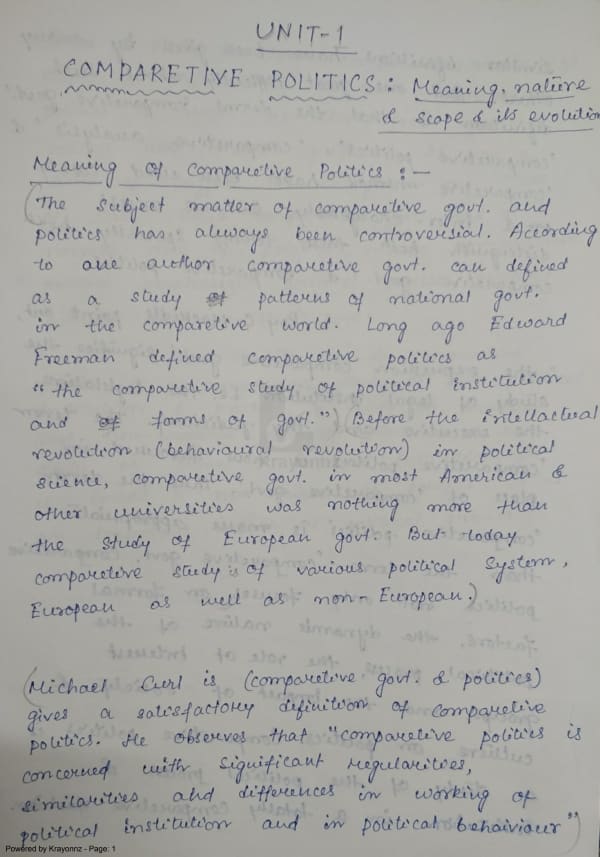 UNIT-1
COMPARETIVE POLITICS: Meaning, nature
& scope & its evolution
Meaning of comparetive Politics :-
(The subject matter of comparetive govt. and
politics has always been controversial. According
to one author comparetive govt. can defined
as a study of patterns of national govt.
in the comparetive world. Long ago Edward
Freeman defined comparetive politics as
"the comparetive study of political institution
and of forms of govt.") (Before the intellactual
revolution (behavioural revolution) in political
science, comparetive govt. in most American &
other universities was nothing more than
the study of European govt. But today
comparetive study is of various political system,
European as well as non-European.)
(Michael Curl is (comparetive govt. & politics)
gives a satisfactory definition of comparetive
politics. He observes that "comparetive politics is
concerned with significant regularities,
similarities and differences in working of
political institution and in political behaiviour")
Powered by Krayonnz - Page: 1